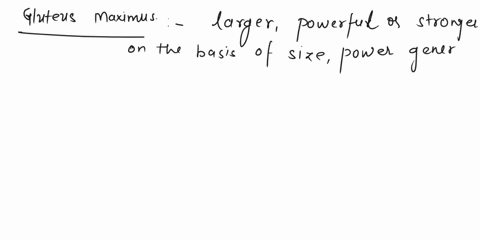 Gluteus Maximus :- larger, powerful or stronge
on the basis of size, power gener